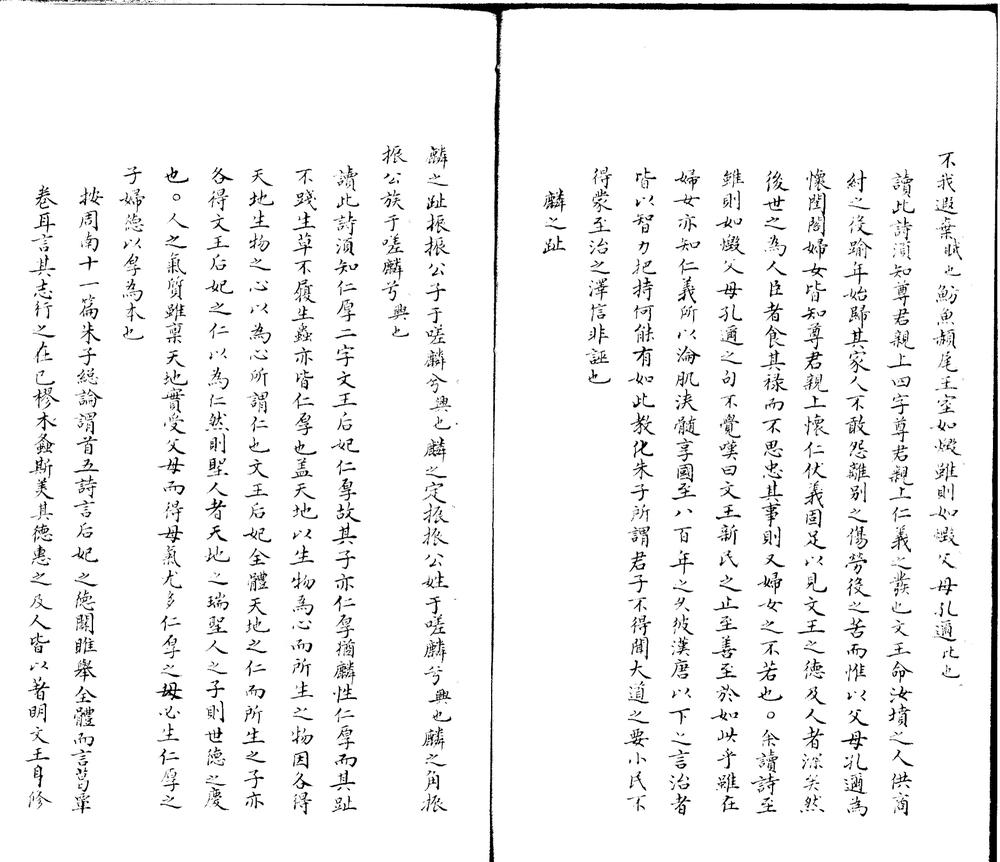 不我遐棄賦也魴魚赬尾王室如燬雖則如燬父母孔邇比也
讀此詩湏知尊君親上四字尊君親上仁義之發也文王命汝墳之人供商
紂之役踰年始歸其家人不敢怨離別之傷勞後之苦而惟以父母孔邇為
懷閨閤婦女皆知尊君親上懷仁伏義固足以見文王之德及人者深矣然
後世之為人臣者食其祿而不思忠其事則又婦女之不若也。余讀詩至
雖則如燬父母孔邇之句不覺嘆曰文王新民之止至善至於如此乎雖在
婦女亦知仁義所以淪肌浹髓享國至八百年之久彼漢唐以下之言治者
皆以智力把持何能有如此教化朱子所謂君子不得聞大道之要小民不
得蒙至治之澤信非誣也
麟之趾
麟之趾振振公子于嗟麟兮興也麟之定振振公姓于嗟麟兮興也麟之角振
振公族于嗟麟兮興也
讀此詩湏知仁厚二字文王后妃仁厚故其子亦仁厚猶麟性仁厚而其趾
不踐生草不履生蟲亦皆仁厚也盖天地以生物為心而所生之物因各得
天地生物之心以為心所謂仁也文王后妃全體天地之仁而所生之子亦
各得文王后妃之仁以為仁然則聖人者天地之瑞聖人之子則世德之慶
也。人之氣質雖稟天地實受父母而得母氣尤多仁厚之母必生仁厚之
子婦德以厚為本也
按周南十一篇朱子総論謂首五詩言后妃之德關雎舉全體而言葛覃
卷耳言其志行之在已樛木螽斯美其德惠之及人皆以著明文王身修